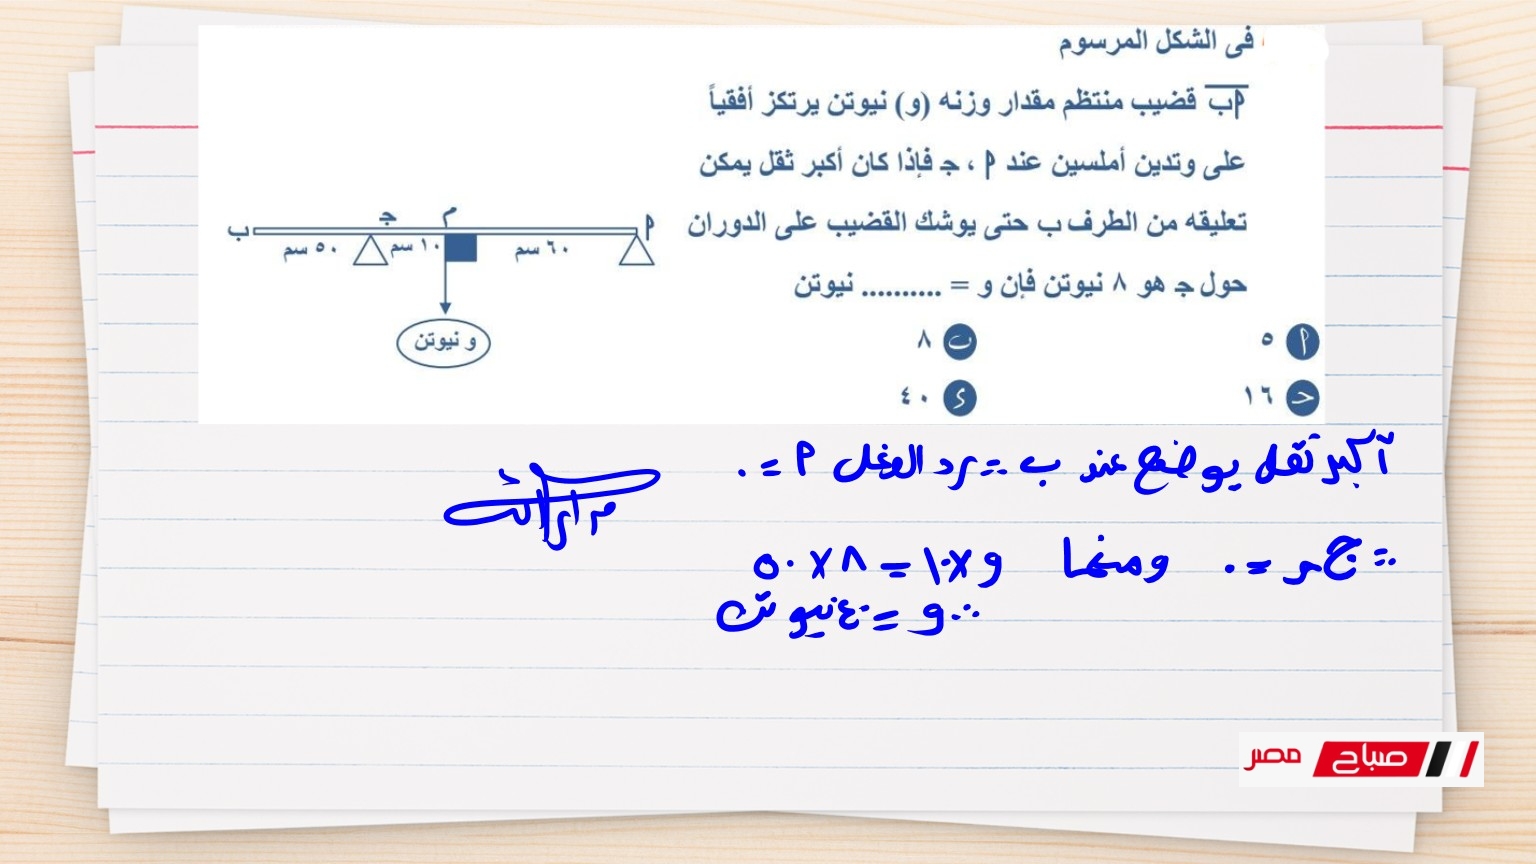 فى الشكل المرسوم
أب قضيب منتظم مقدار وزنه (و) نيوتن يرتكز أفقياً
على وتدين أملسين عند أ ، جـ فإذا كان أكبر ثقل يمكن
تعليقه من الطرف ب حتى يوشك القضيب على الدوران
حول جـ هو ٨ نيوتن فإن و = .......... نيوتن
أ ٥
ب ٨
حـ ١٦
ء ٤٠
ب جـ م أ
٥٠ سم ١٠ سم ٦٠ سم
و نيوتن
أكبر ثقل يوضع عند ب ∴ رد الفعل أ = ٠
∴ جـ = ٠ ومنها و×١٠ = ٨×٥٠
∴ و = ٤٠ نيوتن
صباح مصر